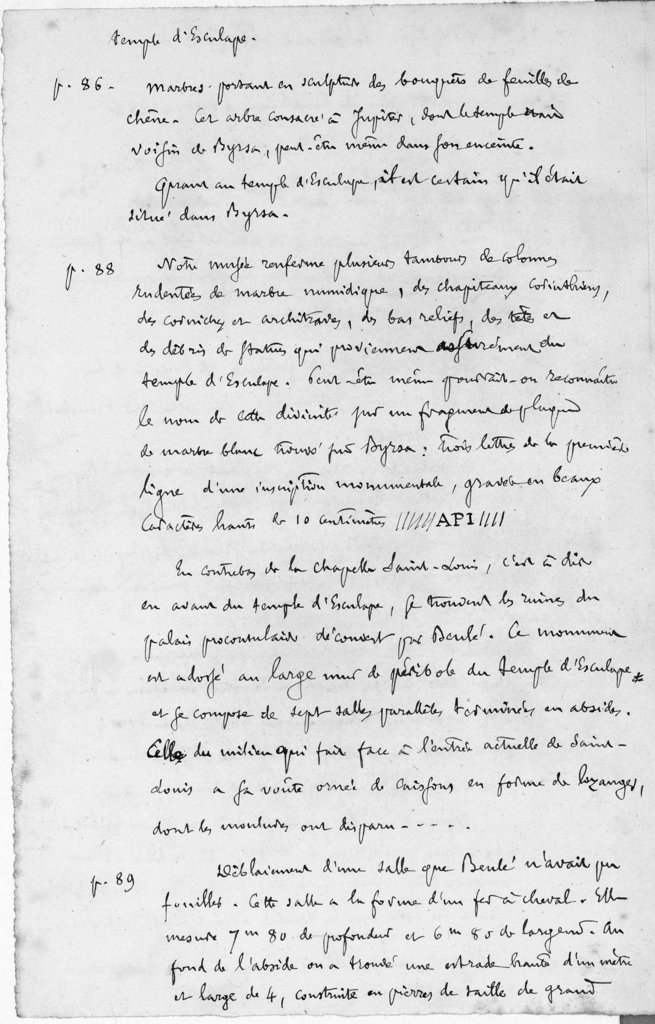 temple d'Esculape.
p. 86. Marbres portant en sculpture des bouquets de feuilles de
chêne. Cet arbre consacré à Jupiter, dont le temple était
voisin de Byrsa, peut-être même dans son enceinte.
Quant au temple d'Esculape, il est certain qu'il était
situé dans Byrsa.
p. 88 Notre musée renferme plusieurs tambours de colonnes
rudentées de marbre numidique, des chapiteaux corinthiens,
des corniches et architraves, des bas reliefs, des têtes et
des débris de statues qui proviennent assurément du
temple d'Esculape. Peut-être même pourrait-on reconnaître
le nom de cette divinité sur un fragment de plaque
de marbre blanc trouvé sur Byrsa: trois lettres de la première
ligne d'une inscription monumentale, gravée en beaux
caractères hauts de 10 centimètres /////API////
En contrebas de la chapelle Saint-Louis, c'est à dire
en avant du temple d'Esculape, se trouvent les ruines du
palais proconsulaire découvert par Beulé. Ce monument
est adossé au large mur de péribole du temple d'Esculape *
et se compose de sept salles parallèles terminées en absides.
Celle du milieu qui fait face à l'entrée actuelle de Saint-
Louis a sa voûte ornée de caissons en forme de lozanges,
dont les moulures ont disparu - - - - .
p. 89 Déblaiement d'une salle que Beulé n'avait pu
fouiller. Cette salle a la forme d'un fer à cheval. Elle
mesure 7m 80 de profondeur et 6m 80 de largeur. Au
fond de l'abside on a trouvé une estrade haute d'un mètre
et large de 4, construite en pierres de taille de grand